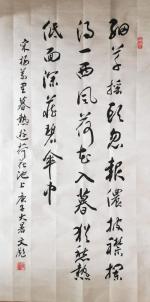 細草搖頭忽報儂披襟攔
得一西風荷花入暮猶愁熱
低面深藏碧傘中
宋楊萬里暮熱游荷花池上庚子大暑文彪